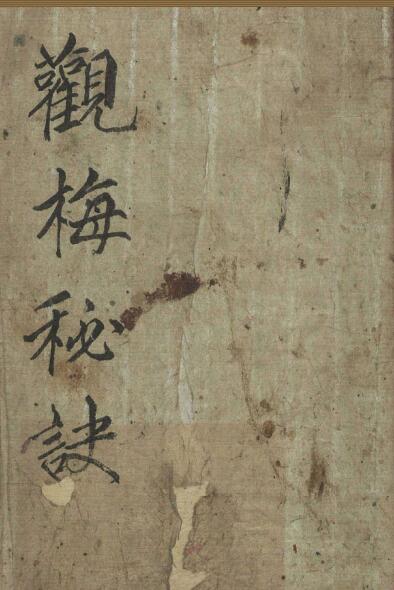 觀梅秘訣